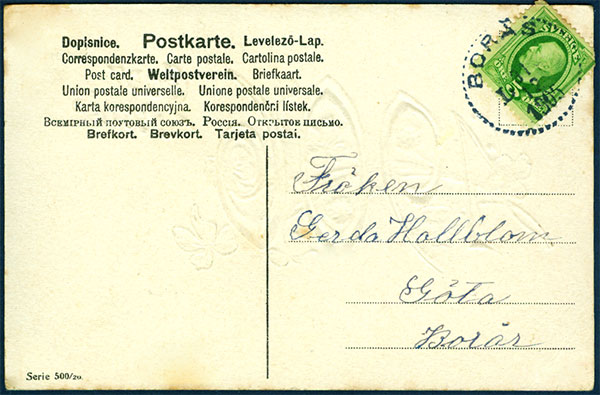 Dopisnice. Postkarte. Levelező-Lap.
Correspondenzkarte. Carte postale. Cartolina postale.
Post card. Weltpostverein. Briefkaart.
Union postale universelle. Unione postale universale.
Karta korespondencyjna. Korespondenčni listek.
Всемірный поутовый союзъ. Россія. Открытое письмо.
Brefkort. Brevkort. Tarjeta postal.
BORÅS
SVERIGE
Fröken
Gerda Hallblom
Göta
Borås
Serie 500/20.